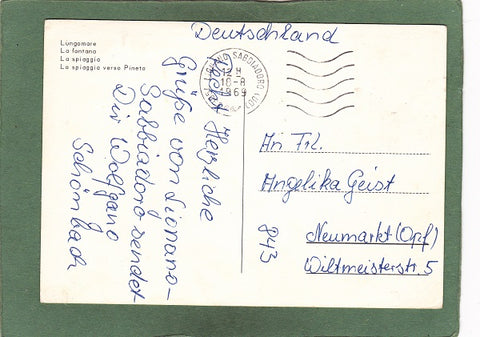 Lungomare
La fontana
La spiaggia
La spiaggia verso Pineto
Deutschland
LIGNANO SABBIADORO (UD)
12 H
10-8
1969
Recht Herzliche
Grüße von Lignano-
Sabbiadoro sendet
Dir Wolfgang
Schönbach
An Frl.
Angelika Geist
843 Neumarkt (Opf)
Wiltmeisterstr. 5